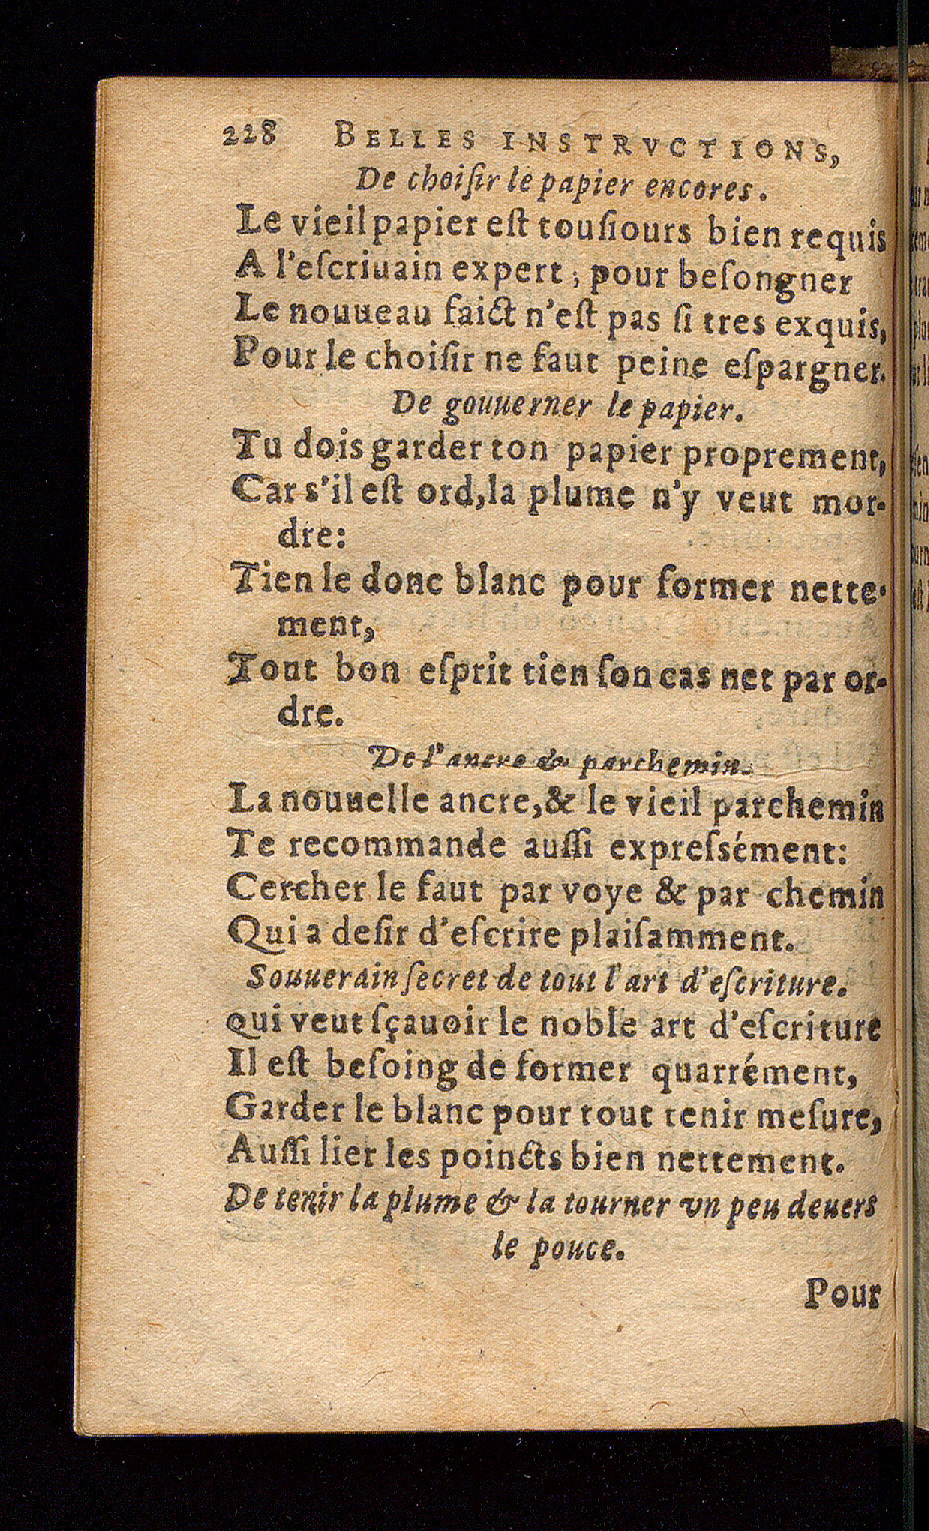 228 BELLES INSTRVCTIONS,
De choiſir le papier encores.
Le vieil papier eſt touſiours bien requis
A l'eſcriuain expert, pour beſongner
Le nouueau faict n'eſt pas ſi tres exquis,
Pour le choiſir ne faut peine eſpargner.
De gouuerner le papier.
Tu dois garder ton papier proprement,
Car s'il eſt ord, la plume n'y veut mor-
dre:
Tien le donc blanc pour former nette-
ment,
Tout bon eſprit tien ſon cas net par or-
dre.
De l'ancre & parchemin.
La nouuelle ancre, & le vieil parchemin
Te recommande auſſi expreſsément:
Cercher le faut par voye & par chemin
Qui a deſir d'eſcrire plaiſamment.
Souuerain ſecret de tout l'art d'eſcriture.
Qui veut ſçauoir le noble art d'eſcriture
Il eſt beſoing de former quarrément,
Garder le blanc pour tout tenir meſure,
Auſſi lier les poincts bien nettement.
De tenir la plume & la tourner vn peu deuers
le pouce.
Pour